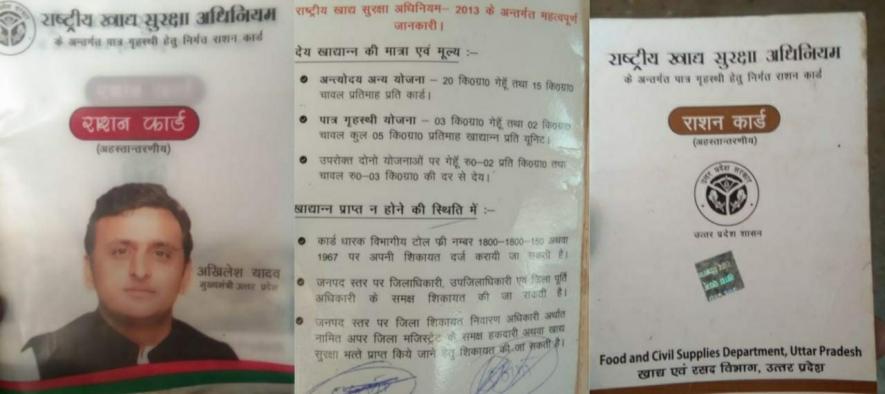 राष्ट्रीय खाद्य सुरक्षा अधिनियम
के अन्तर्गत पात्र गृहस्थी हेतु निर्गत राशन कार्ड
राशन कार्ड
(अहस्तान्तरणीय)
अखिलेश यादव
मुख्यमंत्री उत्तर प्रदेश
राष्ट्रीय खाद्य सुरक्षा अधिनियम– 2013 के अन्तर्गत महत्वपूर्ण
जानकारी।
देय खाद्यान्न की मात्रा एवं मूल्य :–
अन्त्योदय अन्य योजना – 20 कि०ग्रा० गेहूँ तथा 15 कि०ग्रा०
चावल प्रतिमाह प्रति कार्ड।
पात्र गृहस्थी योजना – 03 कि०ग्रा० गेहूं तथा 02 कि०ग्रा०
चावल कुल 05 कि०ग्रा० प्रतिमाह खाद्यान्न प्रति यूनिट।
उपरोक्त दोनो योजनाओं पर गेहूँ रु०-02 प्रति कि०ग्रा० तथा
चावल रु०-03 कि०ग्रा० की दर से देय।
खाद्यान्न प्राप्त न होने की स्थिति में :–
कार्ड धारक विभागीय टोल फ्री नम्बर 1800-1800-150 अथवा
1967 पर अपनी शिकायत दर्ज करायी जा सकती है।
जनपद स्तर पर जिलाधिकारी, उपजिलाधिकारी एवं जिला पूर्ति
अधिकारी के समक्ष शिकायत की जा सकती है।
जनपद स्तर पर जिला शिकायत निवारण अधिकारी अर्थात
नामित अपर जिला मजिस्ट्रेट के समक्ष हकदारी अथवा खाद्य
सुरक्षा भत्ते प्राप्त किये जाने हेतु शिकायत की जा सकती है।
राष्ट्रीय खाद्य सुरक्षा अधिनियम
के अन्तर्गत पात्र गृहस्थी हेतु निर्गत राशन कार्ड
राशन कार्ड
(अहस्तान्तरणीय)
उत्तर प्रदेश सरकार
उत्तर प्रदेश शासन
Food and Civil Supplies Department, Uttar Pradesh
खाद्य एवं रसद विभाग, उत्तर प्रदेश